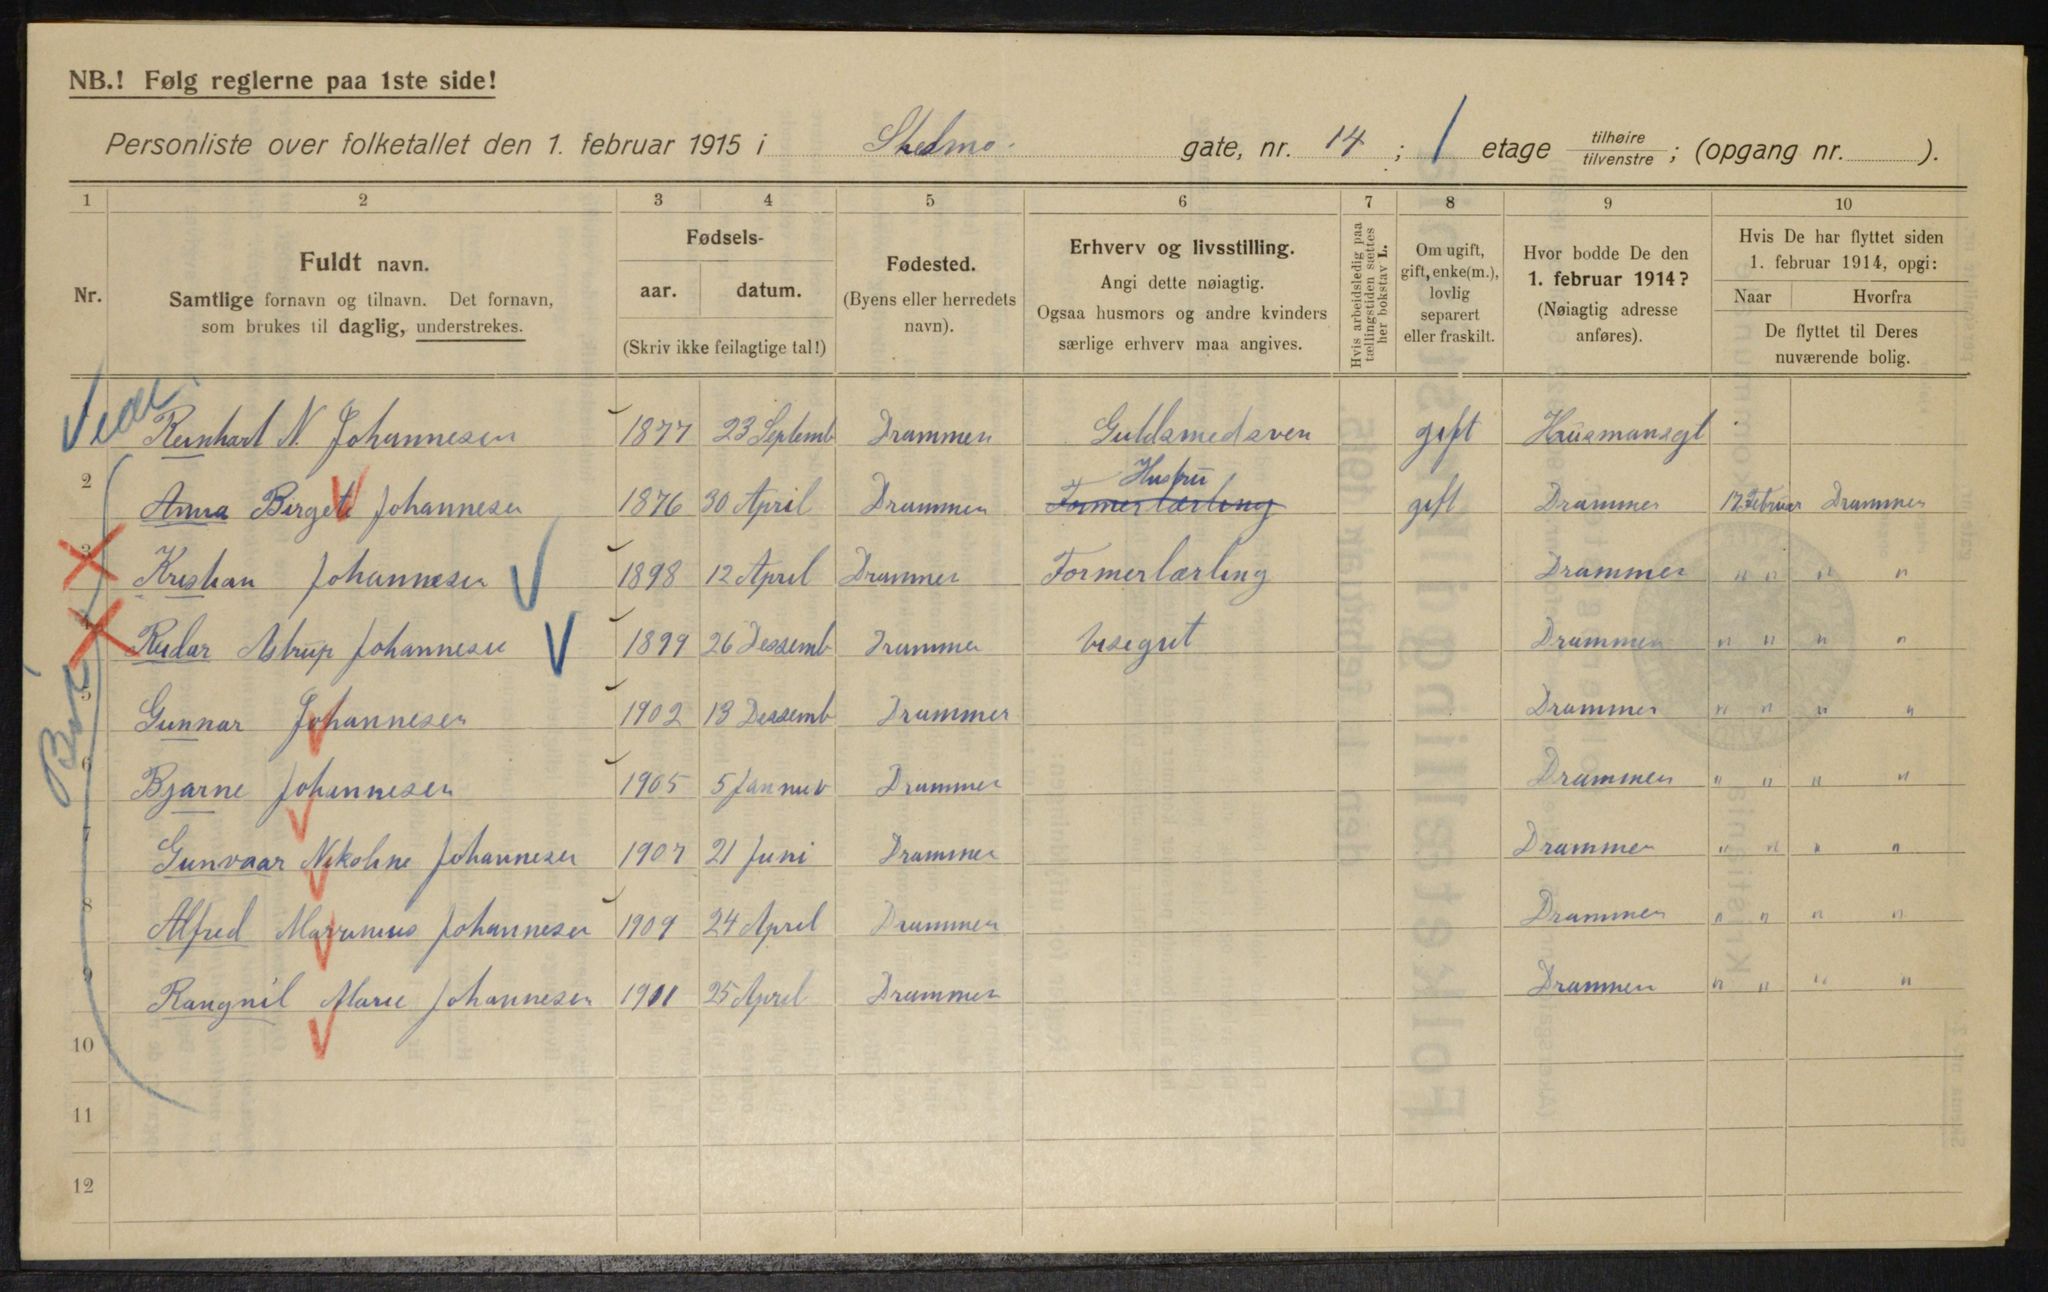 NB.! Følg reglerne paa 1ste side!
Personliste over folketallet den 1. februar 1915 i Skedmo gate, nr. 14 ; 1 etage tilhøire tilvenstre ; (opgang nr. ).
1 2 3 4 5 6 7 8 9 10
Nr.
Fuldt navn.
Samtlige fornavn og tilnavn. Det fornavn,
som brukes til daglig, understrekes.
Fødsels-
aar. datum.
(Skriv ikke feilagtige tal!)
Fødested.
(Byens eller herredets
navn).
Erhverv og livsstilling.
Angi dette nøiagtig.
Ogsaa husmors og andre kvinders
særlige erhverv maa angives.
Hvis arbeidsledig paa
tællingstiden sættes
her bokstav L.
Om ugift,
gift, enke(m.),
lovlig
separert
eller fraskilt.
Hvor bodde De den
1. februar 1914?
(Nøiagtig adresse
anføres).
Hvis De har flyttet siden
1. februar 1914, opgi:
Naar Hvorfra
De flyttet til Deres
nuværende bolig.
Reinhart N. Johannesen 1877 23 Septemb Drammen Guldsmedsven gift Husmansgt
2 Anna Birgete Johannesen 1876 30 April Drammen Hustru Formerlærling gift Drammen 17. Februar Drammen
3 Kristian Johannesen 1898 12 April Drammen Formerlærling Drammen " " " "
4 Reidar Astrup Johannesen 1899 26 Dessemb Drammen Visegut Drammen " " " "
5 Gunnar Johannesen 1902 13 Dessemb Drammen Drammen " " " "
6 Bjarne Johannesen 1905 5 Januar Drammen Drammen " " " "
7 Gunvaar Nikoline Johannesen 1907 21 Juni Drammen Drammen " " " "
8 Alfred Marinius Johannesen 1909 24 April Drammen Drammen " " " "
9 Rangnil Marie Johannesen 1911 25 April Drammen Drammen " " " "
10
11
12